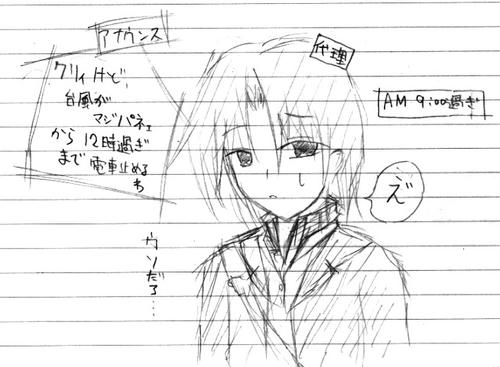 アナウンス
ワリィけど、
台風が
マジパネェ
から12時過ぎ
まで電車止めるわ
代理
AM 9:00過ぎ
…え゛
ウソだろ…